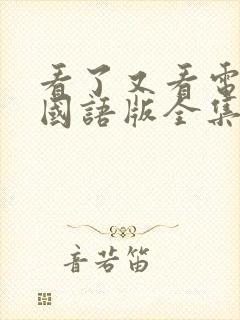 看了又看電
國語版全集
音若笛